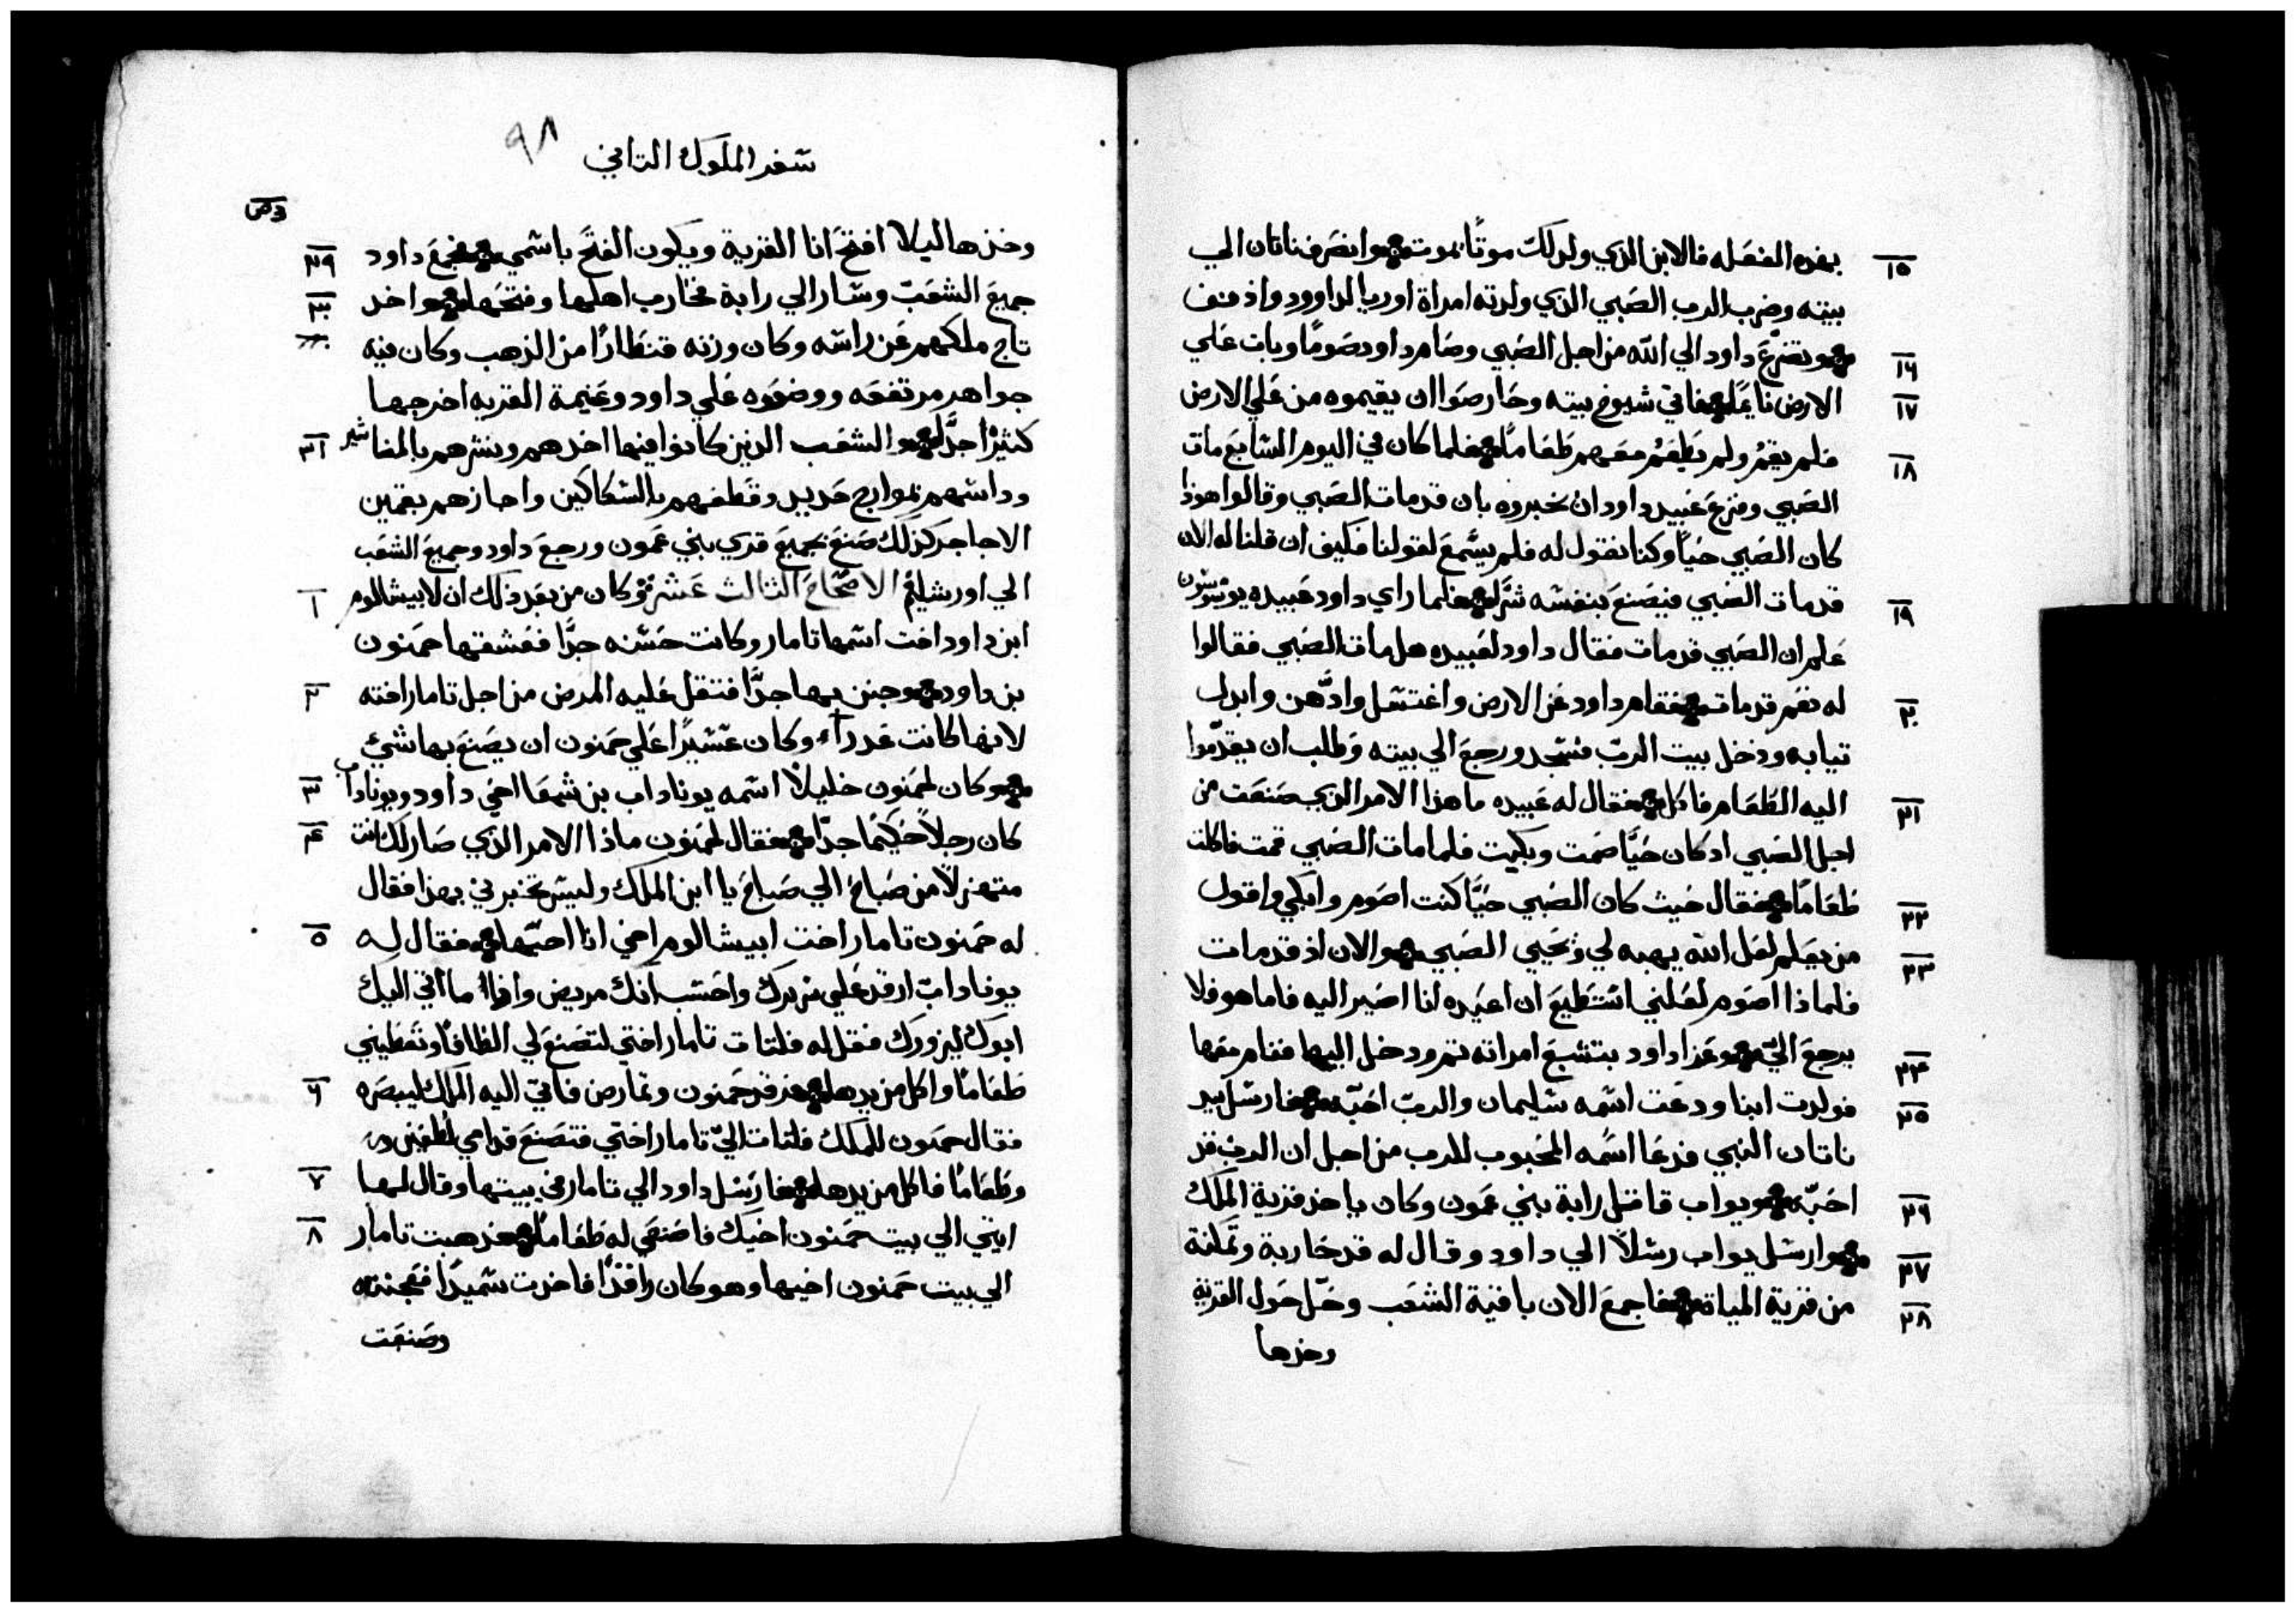 بهذه الفعله فالابن الذي ولد لك موتًا يموت وانصرف ناتان الي
١٥
بيته وضرب الرب الصبي الذي ولدته امراة اوريا لداوود واذ دنف
وتضرع داود الي الله من اجل الصبي وصام داود صومًا وبات علي
١٦
الارض نايمًا فاتي شيوخ بيته وحارصوا ان يقيموه من علي الارض
١٧
فلم يقم ولم يطعم معهم طعامًا فلما كان في اليوم السابع مات
١٨
الصبي وفزع عبيد داود ان يخبروه بان قد مات الصبي وقالوا هوذا
كان الصبي حيًا وكنا نقول له فلم يسمع لقولنا فكيف ان قلنا له الان
قد مات الصبي فيصنع بنفسه شرًا فلما راي داود عبيده يوشوشون
١٩
علم ان الصبي قد مات فقال داود لعبيده هل مات الصبي فقالوا
له نعم قد مات فقام داود عن الارض واغتسل وادّهن وابدل
٢٠
تيابه ودخل بيت الرب فسجد ورجع الي بيته وطلب ان يقدّموا
اليه الطعام فاكل فقال له عبيده ما هذا الامر الذي صنعت من
٢١
اجل الصبي اد كان حيًا صمت وبكيت فلما مات الصبي قمت فاكلت
طعامًا فقال حيث كان الصبي حيًا كنت اصوم وابكي واقول
٢٢
من يعلم لعل الله يهبه لي ويحيي الصبي والان اذ قد مات
٢٣
فلماذا اصوم لعلني استطيع ان اعيده انا اصير اليه فاما هو فلا
يرجع اليّ وعزا داود بتشبع امراته تم ودخل اليها فنام معها
٢٤
فولدت ابنا ودعت اسمه سليمان والرب احبّه فارسل بيد
٢٥
ناتان النبي فدعا اسمه المحبوب للرب من اجل ان الرب قد
احبّه ويواب قاتل رابة بني عمون وكان ياخذ قرية الملك
٢٦
وارسل يواب رسلاً الي داود وقال له قد حاربة وتملكة
٢٧
من قرية المياة فاجمع الان باقية الشعب وحلّ حول القرية
٢٨
وخذها
سفر الملوك التاني
٩٨
وخذها ليلا افتح انا القرية ويكون الفتح باسمي فجمع داود
٢٩
جميع الشعب وسار الي رابة فحارب اهلها وفتحها واخد
٣٠
تاج ملكهم عن راسه وكان وزنه قنطارًا من الذهب وكان فيه
جواهر مرتفعه ووضعوه علي داود وغنيمة القريه اخرجها
كتيرًا جدًا والشعب الدين كانوا فيها اخدهم ونشرهم بالمناشير
٣١
وداسهم بموارج حديد وقطعهم بالسكاكين واجازهم بقمين
الاجاجر كذلك صنع بجميع قري بني عمون ورجع داود وجميع الشعب
الي اورشليم الاصحاح الثالث عشر وكان من بعد ذلك ان لابيشالوم
١
ابن داود اخت اسمها تامار وكانت حسنه جدًا فعشقها حمنون
بن داود وجنن بها جدًا فتقل عليه المرض من اجل تامار اخته
٢
لانها كانت عدراء وكان عسيرًا علي حمنون ان يصنع بها شيء
وكان لحمنون خليلاً اسمه يوناداب بن شمعا اخي داود ويوناداب
٣
كان رجلاً حكيمًا جدًا فقال لحمنون ماذا الامر الذي صار لك انت
٤
متهزلاً من صباح الي صباح يا ابن الملك وليس تخبرني بهذا فقال
له حمنون تامار اخت ابيشالوم اخي انا احبّها فقال له
٥
يوناداب ارقد علي سريرك واحسب انك مريض واذا ما اتي اليك
ابوك ليزورك فقل له فلتات تامار اختي لتصنع لي الظافًا وتعطيني
طعامًا واكل من يدها فرقد حمنون وتمارض فاتي اليه الملك ليبصره
٦
فقال حمنون للملك فلتات اليّ تامار اختي فتصنع قدامي لطفين
وطعامًا فاكل من يدها فارسل داود الي تامار في بيتها وقال لها
٧
ايتي الي بيت حمنون اخيك فاصنعي له طعامًا فدهبت تامار
٨
الي بيت حمنون اخيها وهو كان راقدًا فاخدت سميدًا فعجنته
وصنعت